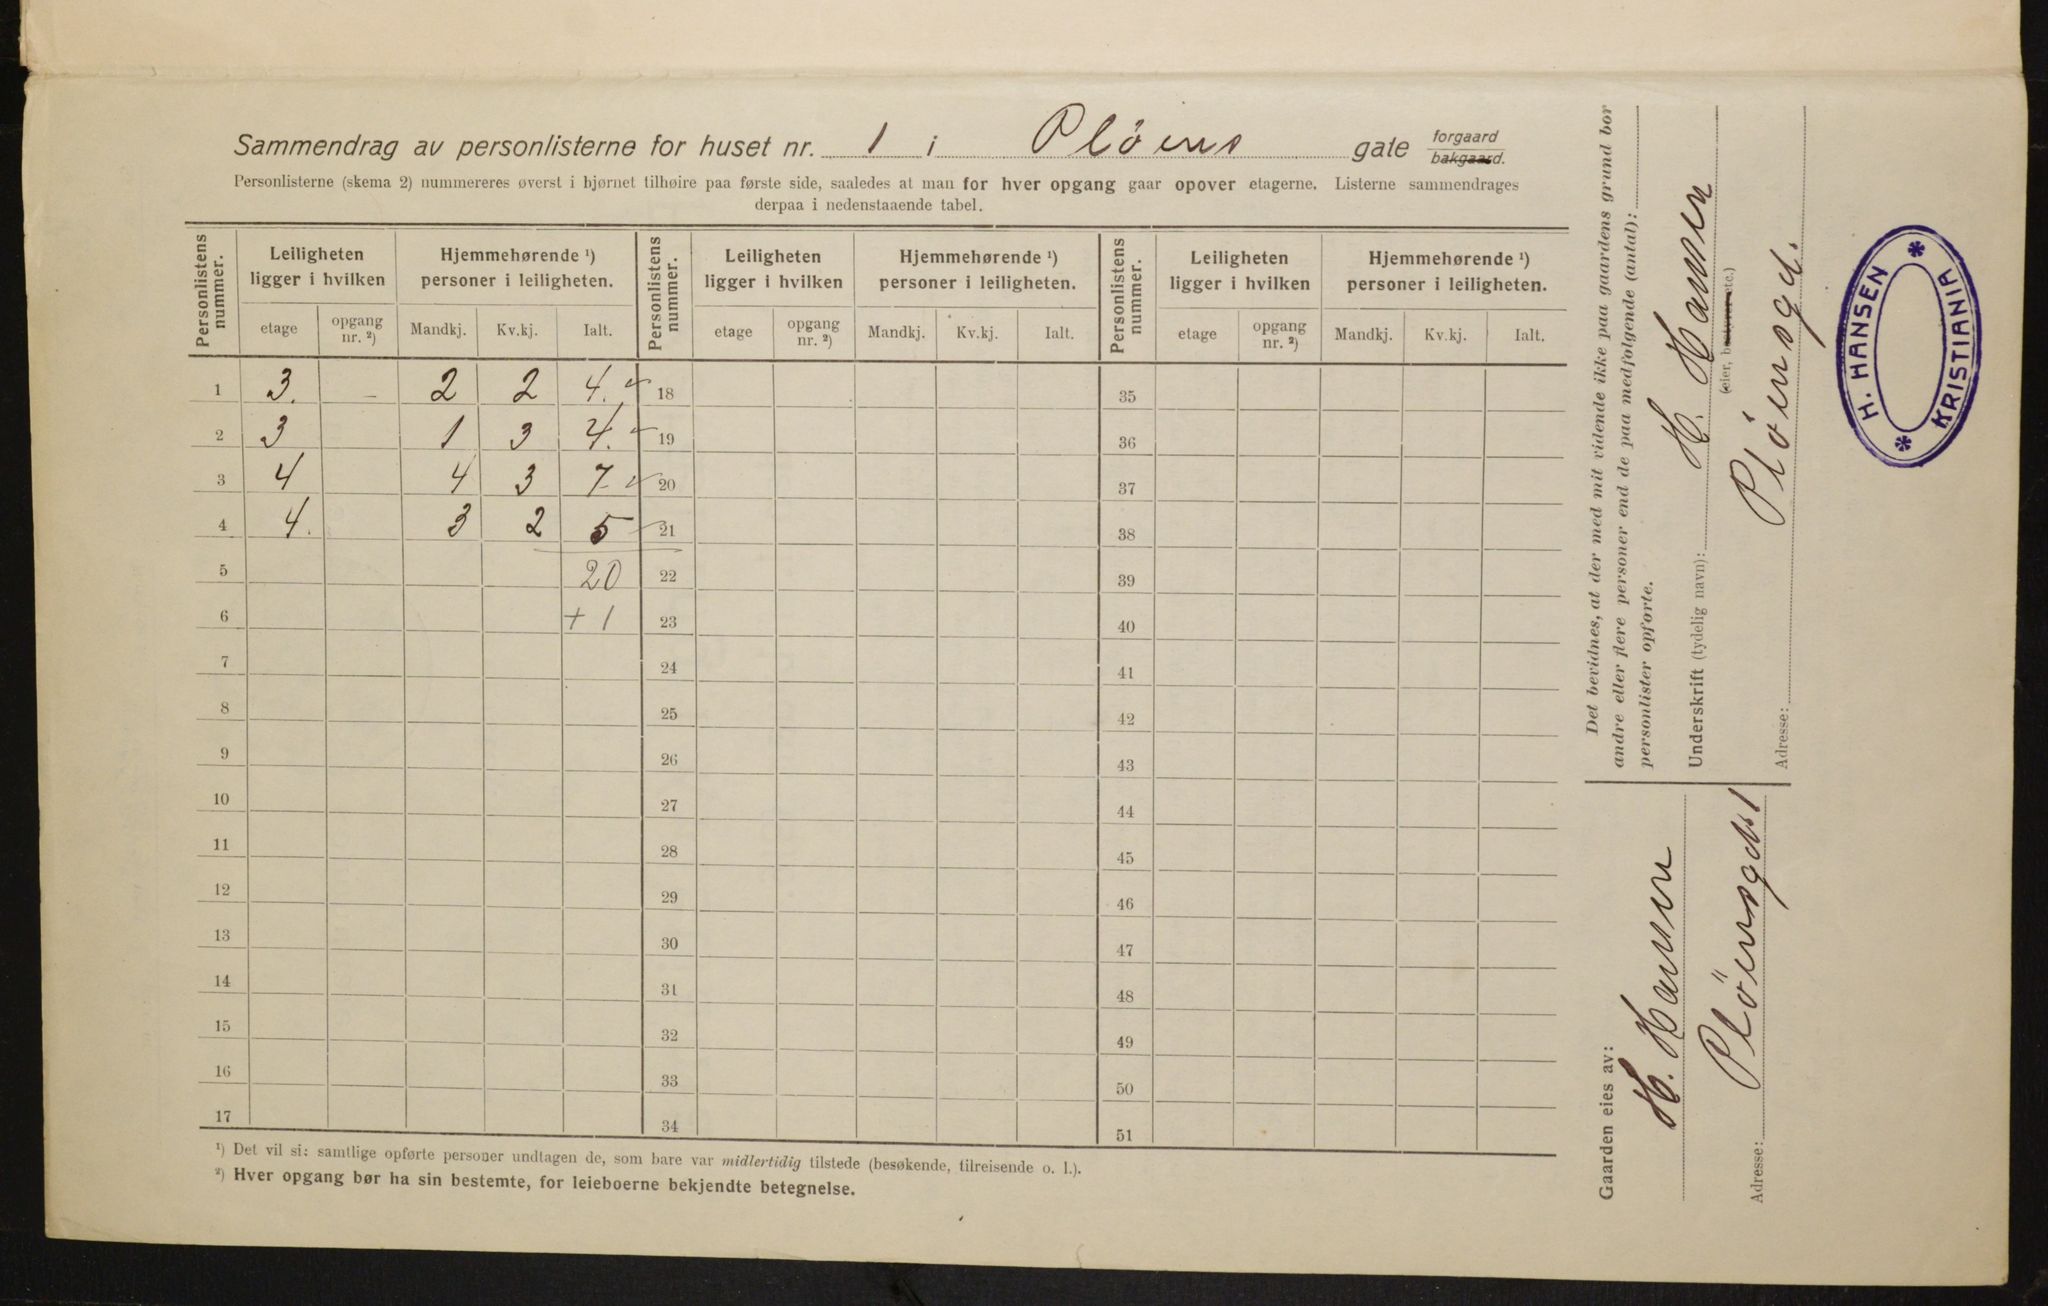 Sammendrag av personlisterne for huset nr. 1 i Pløens gate forgaard bakgaard.
Personlisterne (skema 2) nummereres øverst i hjørnet tilhøire paa første side, saaledes at man for hver opgang gaar opover etagerne. Listerne sammendrages
derpaa i nedenstaaende tabel.
Personlistens nummer. Leiligheten ligger i hvilken Hjemmehørende ¹) personer i leiligheten. Personlistens nummer. Leiligheten ligger i hvilken Hjemmehørende ¹) personer i leiligheten. Personlistens nummer. Leiligheten ligger i hvilken Hjemmehørende ¹) personer i leiligheten.
etage opgang nr. ²) Mandkj. Kv.kj. Ialt. etage opgang nr. ²) Mandkj. Kv.kj. Ialt. etage opgang nr. ²) Mandkj. Kv.kj. Ialt.
1 3. – 2 2 4. 18 35
2 3 1 3 4. 19 36
3 4 4 3 7 20 37
4 4. 3 2 5 21 38
5 20 22 39
6 + 1 23 40
7 24 41
8 25 42
9 26 43
10 27 44
11 28 45
12 29 46
13 30 47
14 31 48
15 32 49
16 33 50
17 34 51
¹) Det vil si: samtlige opførte personer undtagen de, som bare var midlertidig tilstede (besøkende, tilreisende o. l.).
²) Hver opgang bør ha sin bestemte, for leieboerne bekjendte betegnelse.
Det bevidnes, at der med mit vidende ikke paa gaardens grund bor
andre eller flere personer end de paa medfølgende (antal):
personlister opførte.
Underskrift (tydelig navn): H. Hansen
(eier, bestyrer etc.)
Adresse: Pløensgd.
Gaarden eies av:
H. Hansen
Adresse: Pløensgd 1
H. HANSEN * KRISTIANIA *